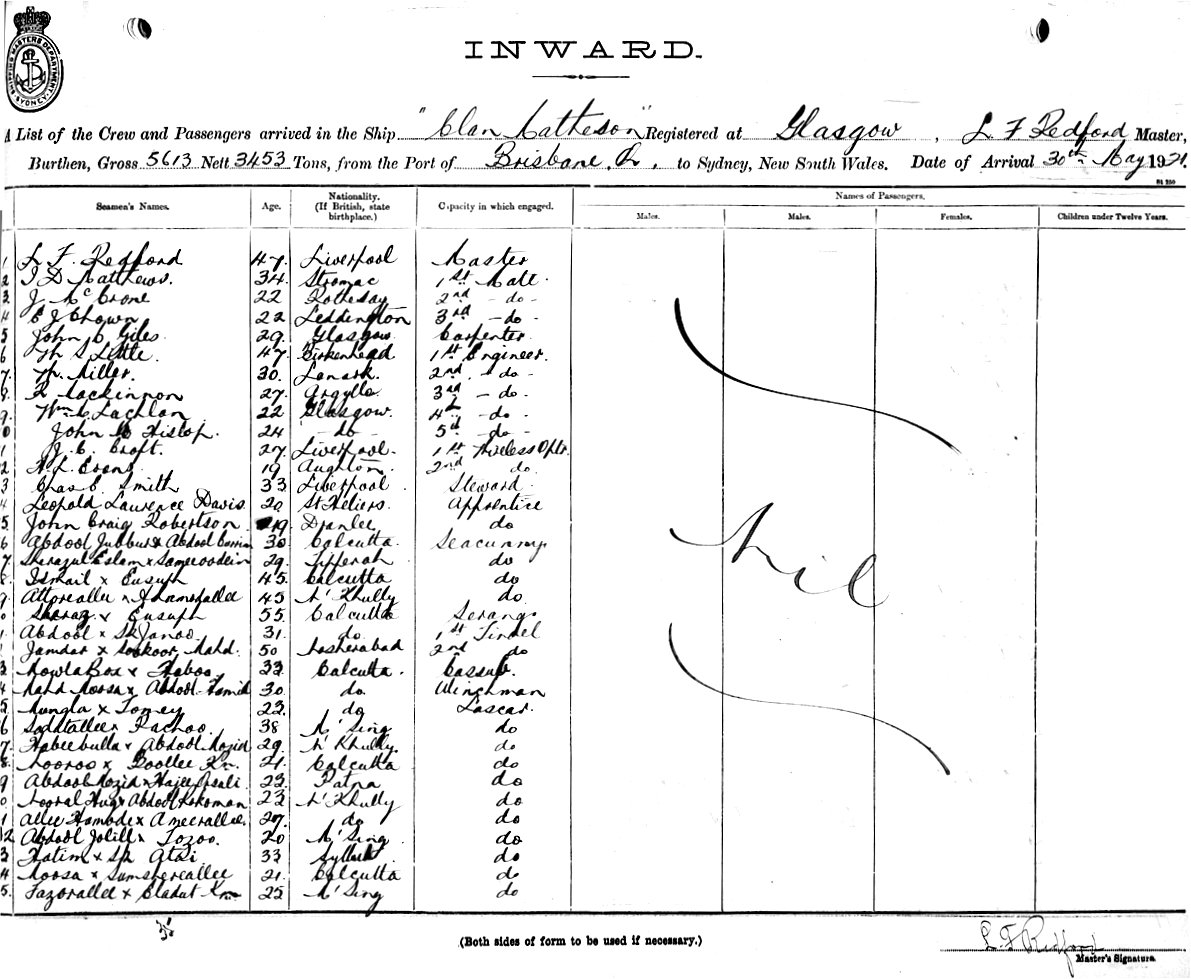 SHIPPING MASTERS DEPARTMENT. SYDNEY.
INWARD.
A List of the Crew and Passengers arrived in the Ship "Clan Matheson" Registered at Glasgow, L. F. Redford Master,
Burthen, Gross 5613 Nett 3453 Tons, from the Port of Brisbane Q., to Sydney, New South Wales. Date of Arrival 30th May 1921
Seamen's Names. Age. Nationality. (If British, state birthplace.) Capacity in which engaged. Names of Passengers.
Males. Males. Females. Children under Twelve Years.
1 L F. Redford 47. Liverpool Master
2 Matthews. 34. 1st Mate
3 J. McCrone 22 Rothesay 2nd - do -
4 E J Chown 22 Leddington 3rd - do -
5 John C Giles 29. Glasgow. Carpenter
6 S Little. 47 Birkenhead 1st Engineer.
7. Miller. 30. Lanark. 2nd - do -
8. Mackinnon 27. Argylle. 3rd - do -
9. Wm Lachlan 22 Glasgow. 4th - do -
0 John Hislop. 24 - do - 5th - do -
1 J. C. Croft. 27. Liverpool. 1st Wireless Optr.
2 Evans. 19 Aughton. 2nd do.
3 Chas C. Smith 33 Liverpool Steward
4 Leopold Laurence Davis. 20 St Heliers. Apprentice
5 John Craig Robertson 19. do
6 Abdool Jubbur x Abdool 30 Calcutta. Seacunny
7 x 29. Tipperah do
8. Ismail x Eusuph 45. Calcutta do
9 x 45 N' Khully do
0 x Eusuph 55. Calcutta Serang
1 Abdool x Sk Janoo. 31. do 1st Tindel
Jamdar x 50 2nd do
3 x 33. Calcutta. Cassub.
4 Mahd Moosa x Abdool Hamid 30. do. Winchman
5 Mungla x Tomey 23. do Lascar.
6 38 M' Sing do
7 Habeebulla x Abdool Mozid 29. N' Khully. do
8. Nooroo x 21. Calcutta do
9 Abdool Mozid x 23. Patna do
0 x Abdool 23 N' Khully do
1 x 27. do do
2 x 20 M' Sing do
3 Hatim x Sk 33 do
4 Moosa x 21. Calcutta do
5. Fazorallee x 25 M' Sing do
nil
35
(Both sides of form to be used if necessary.)
L. F Redford
Master's Signature.